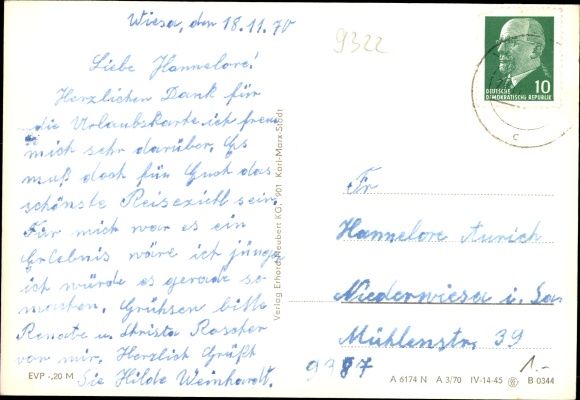 Wiesa, den 18.11.70
Liebe Hannelore!
Herzlichen Dank für
die Urlaubskarte ich freue
mich sehr darüber. Es
muß dort für Gust das
schönste Reiseziehl sein.
Für mich war es ein
Erlebnis wäre ich jünger
ich würde es gerade so
machen. Grühsen bitte
Renate u. Christa Roscher
von mir. Herzlich Grüßt
Sie Hilde Weinhardt.
EVP -,20 M
Verlag Erhard Neubert KG, 901 Karl-Marx-Stadt
9322
DEUTSCHE
DEMOKRATISCHE REPUBLIK
10
c
Fr
Hannelore Aurich
Niederwiesa i. Sa
Mühlenstr. 39
9387
1.-
A 6174 N A 3/70 IV-14-45 B 0344